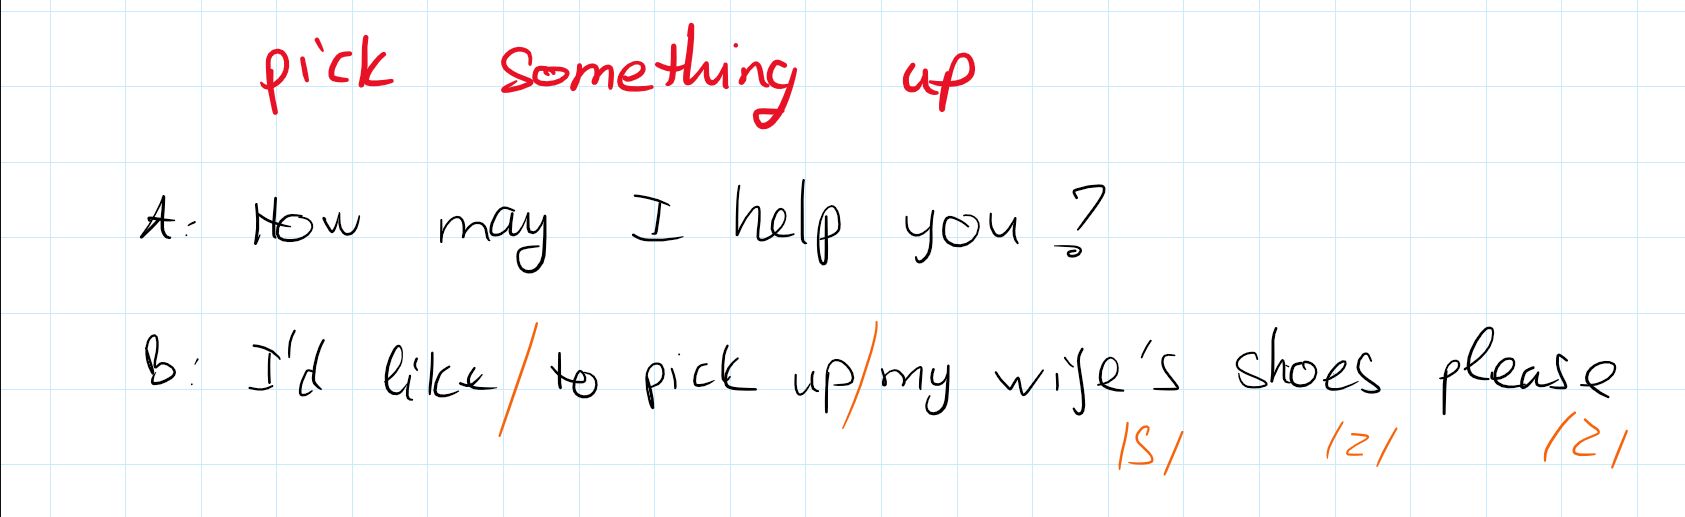 pick something up
A: How may I help you?
B: I'd like/to pick up/my wife's shoes please
/s/ /z/ /z/